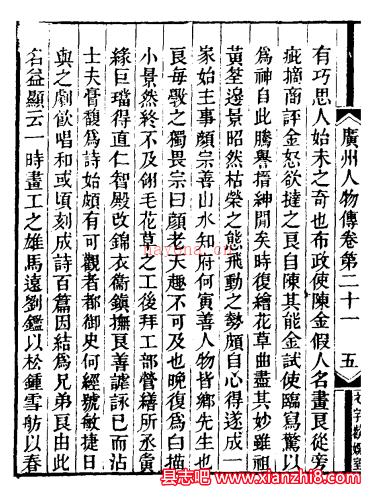 廣州人物傳卷第二十一 五
有巧思人始未之奇也布政使陳金假人名畫艮從旁
疵摘商評金怒欲撻之艮自陳其能金試使臨寫驚以
爲神自此騰舉搢紳聞矣時復繪花草曲盡其妙雖祖
黃荃邊景昭然枯榮之態飛動之勢頗自心得遂成一
家始主事顔宗善山水知府何寅善人物皆鄉先生也
艮每斆之獨畏宗曰顔老天趣不可及也晚復爲白描
小景然終不及翎毛花草之工後拜工部營繕所丞夤
緣巨璫得直仁智殿改錦衣衛鎭撫艮善謔詠已而沾
士夫膏馥爲詩始頗有可觀者都御史何經號敏捷日
與之劇飲唱和或頃刻成詩百篇因結爲兄弟艮由此
名益顯云一時畫工之雄馬遠劉鑑以松鍾雪舫以春
县志吧 www.xianzhi8.com